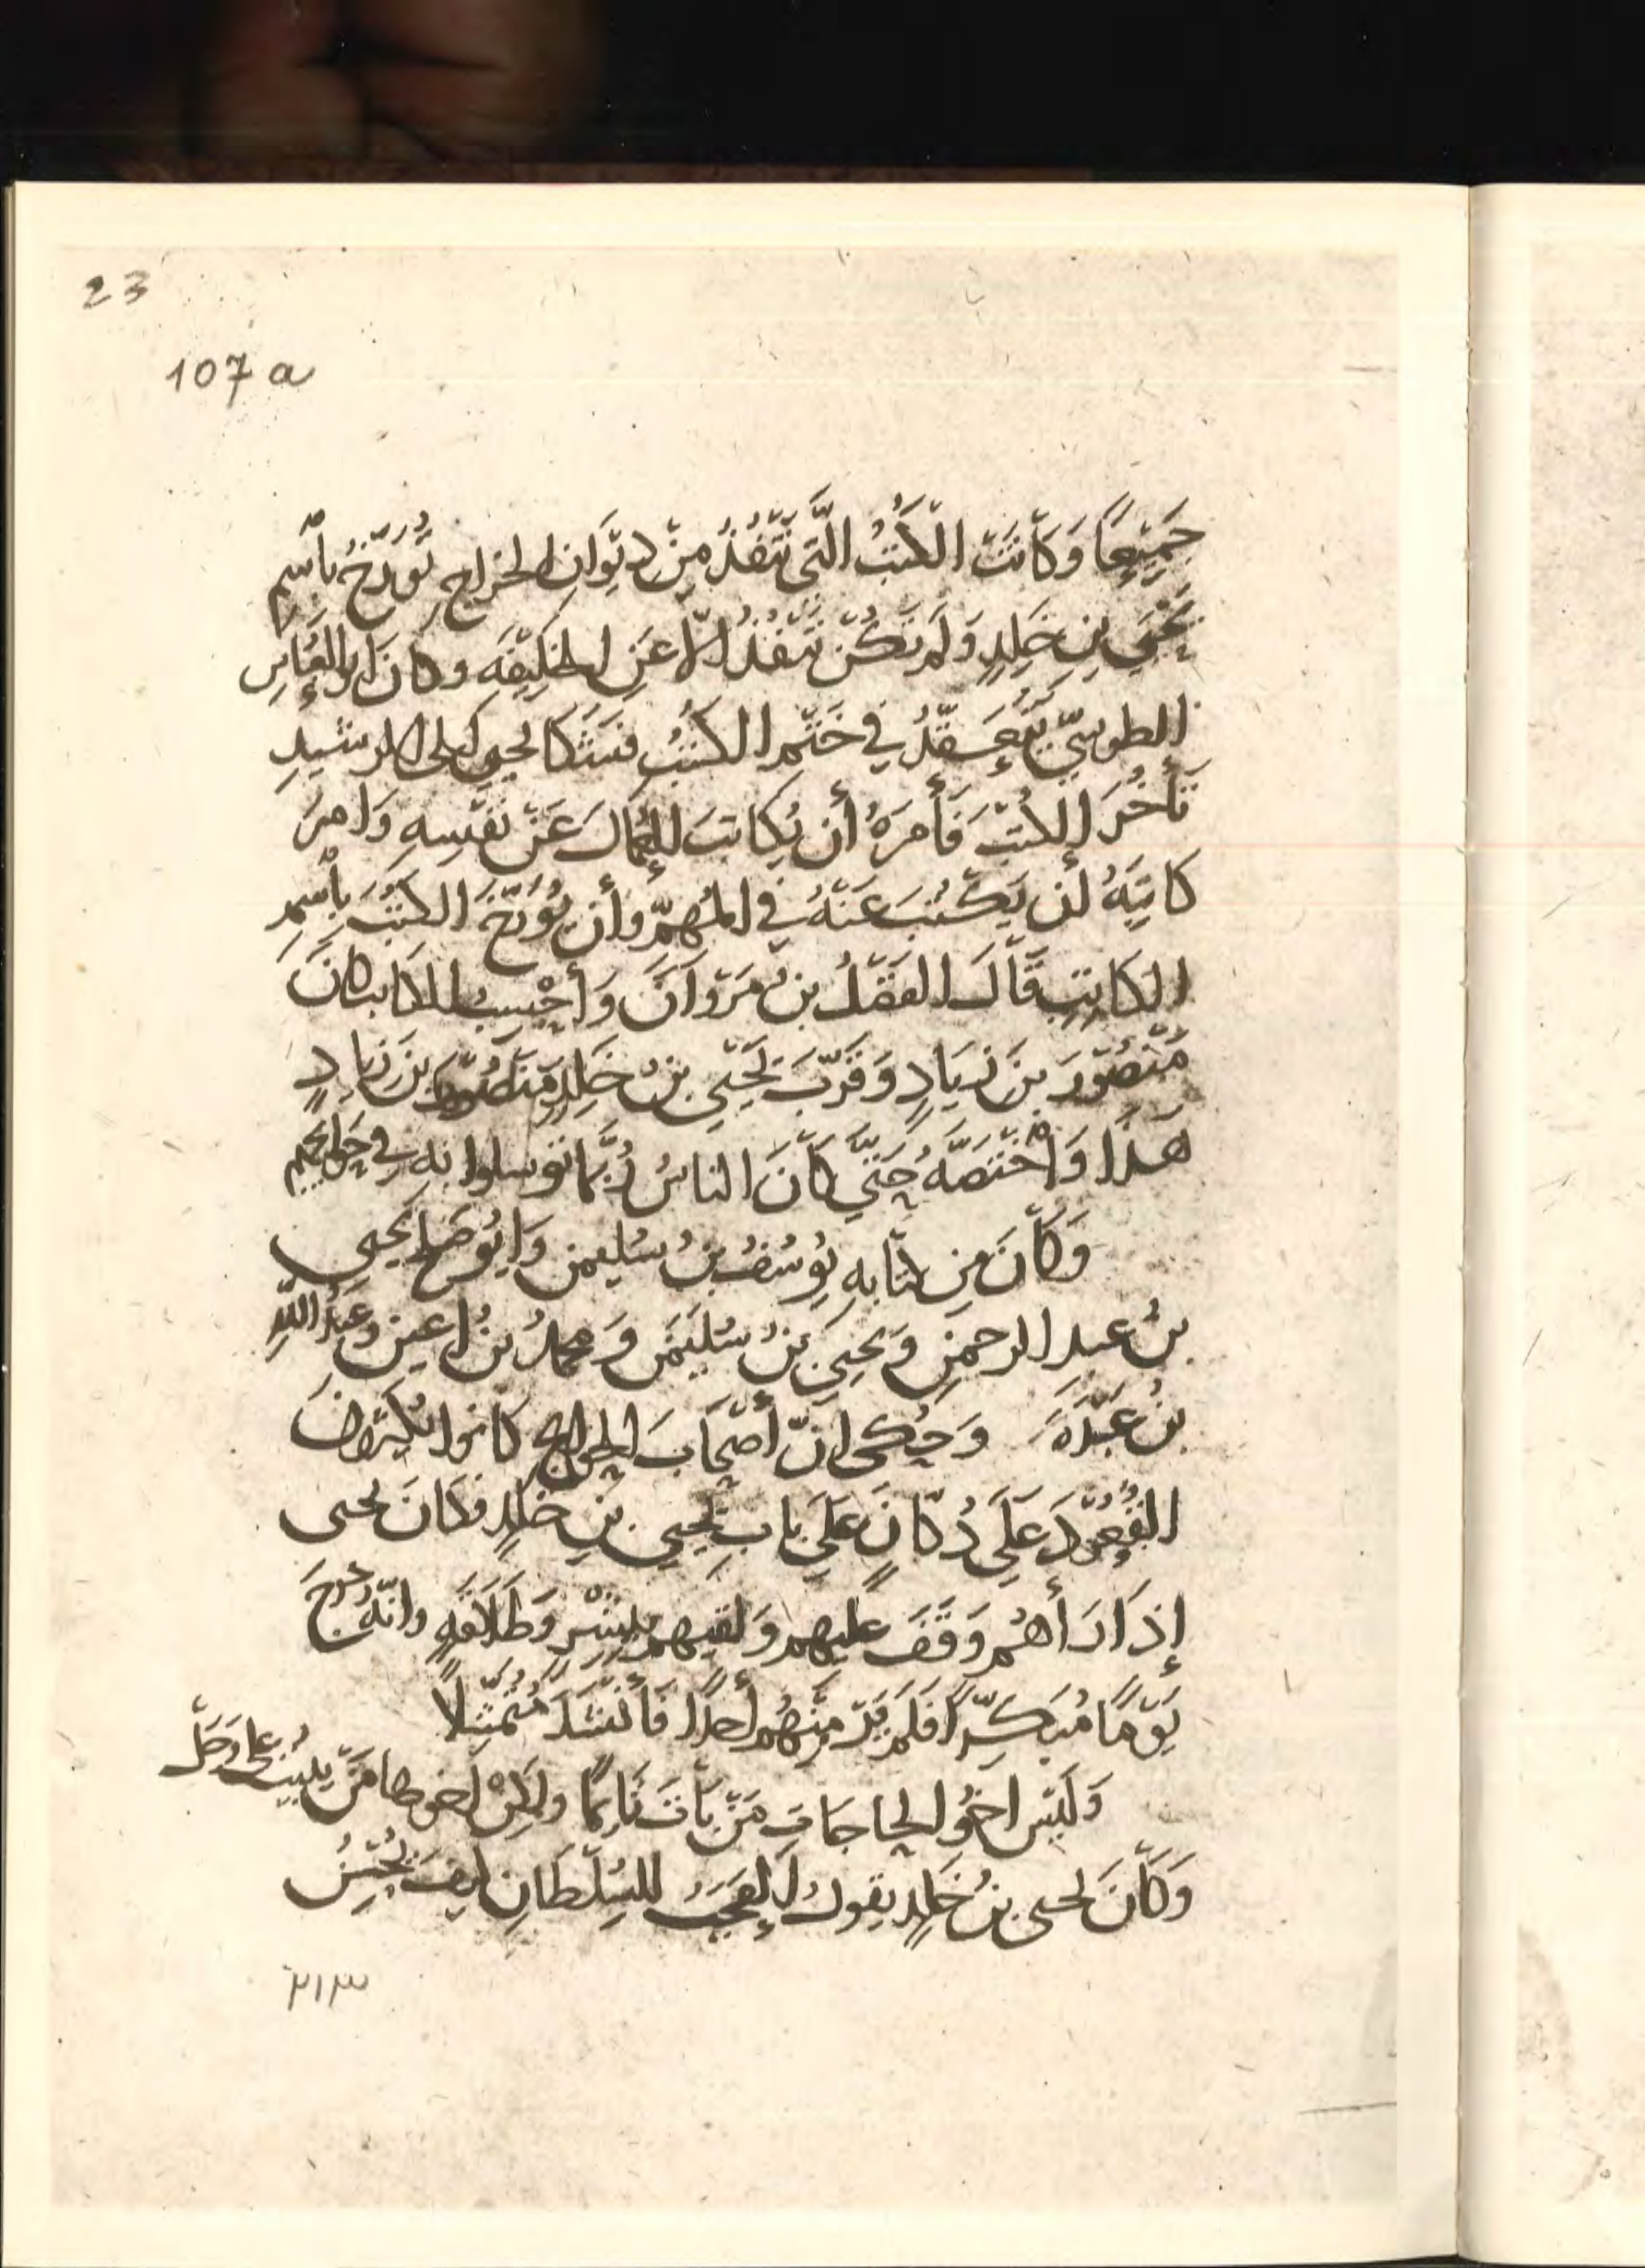 23
107a
جَمِيْعًا وَكَانَتْ الْكُتُبُ الَّتِي تَنْفُذُ مِنْ دِيْوَانِ الخراجِ تُوَرَّخُ بِاسْمِ
يَحْيَى بنِ خَلِدٍ وَلَم تَكُنْ تَنْفُذُ الّا عَنِ الخَلِيْفَهِ وكان ابو العَبّاسِ
الطوسِيّ يَتَعَقَّدُ فِي خَتْمِ الكُتُبِ فَشَكَا يحيى الى الرشيدِ
تَأَخُّرَ الكُتُبِ فَأَمَرَهُ أن يُكاتِبَ العُمّالَ عَنْ نَفْسِهِ وَامرَ
كَاتِبَهُ أن يَكْتُبَ عَنْهُ فِي المُهِمِّ وأن يُوَرِّخَ الكُتُبَ بِاسْمِ
الكَاتِبِ قَالَ الفَضْلُ بنُ مَرْوَانَ وَأَحْسِبُ الكاتب كَانَ
مَنْصُوْرَ بنَ زِيَادٍ وَقَرَّبَ يَحْيَى بنُ خَلِدٍ مَنصُوْرَ بنَ زيادٍ
هَذَا وَاخْتَصَّهُ حَتَّي كَانَ الناسُ رُبَّمَا توسلوا بِهِ فِي حَوايجهم
وَكَانَ مِن كتّابهِ يُوسُفُ بنُ سُليمن وَابُو صَلِحٍ يحيى
بنُ عبدِ الرحمنِ وَيحيى بنُ سُلَيْمَن وَمحمدُ بنُ اعين وعَبدُ اللهِ
بنُ عَبْدَةَ وَحُكى انّ أَصْحَابَ الحوايج كانوا يُكْثِرُونَ
القُعُودَ عَلَي دُكّانٍ عَلَي بَابِ يَحيى بنِ خَلِدٍ فكَانَ يحيى
إِذَا رَأهُم وَقَفَ عليهم وَلقيهم بِبِشْرٍ وَطَلَاقَهٍ وانّهُ خرجَ
يَوْمًا مُبَكِّرًا فَلَم يَرَ مِنْهُم أَحدًا فَأَنْشَدَ مُتَمَثِّلاً
وَلَيْس اخُو الحاجَاتِ مَنْ بَاتَ نَايمًا ولكِنْ اخوها مَن يَبِيْتُ على وَجَلْ
وَكَانَ يحيى بنُ خَلِدٍ يقول العَجَبُ للسُلطَانِ كيفَ يُحْسِنُ
٢١٣